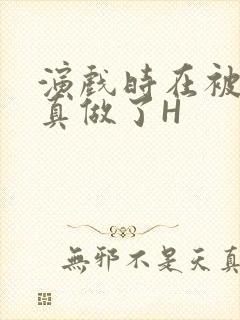 演戏时在被
真做了H
無邪不是天真